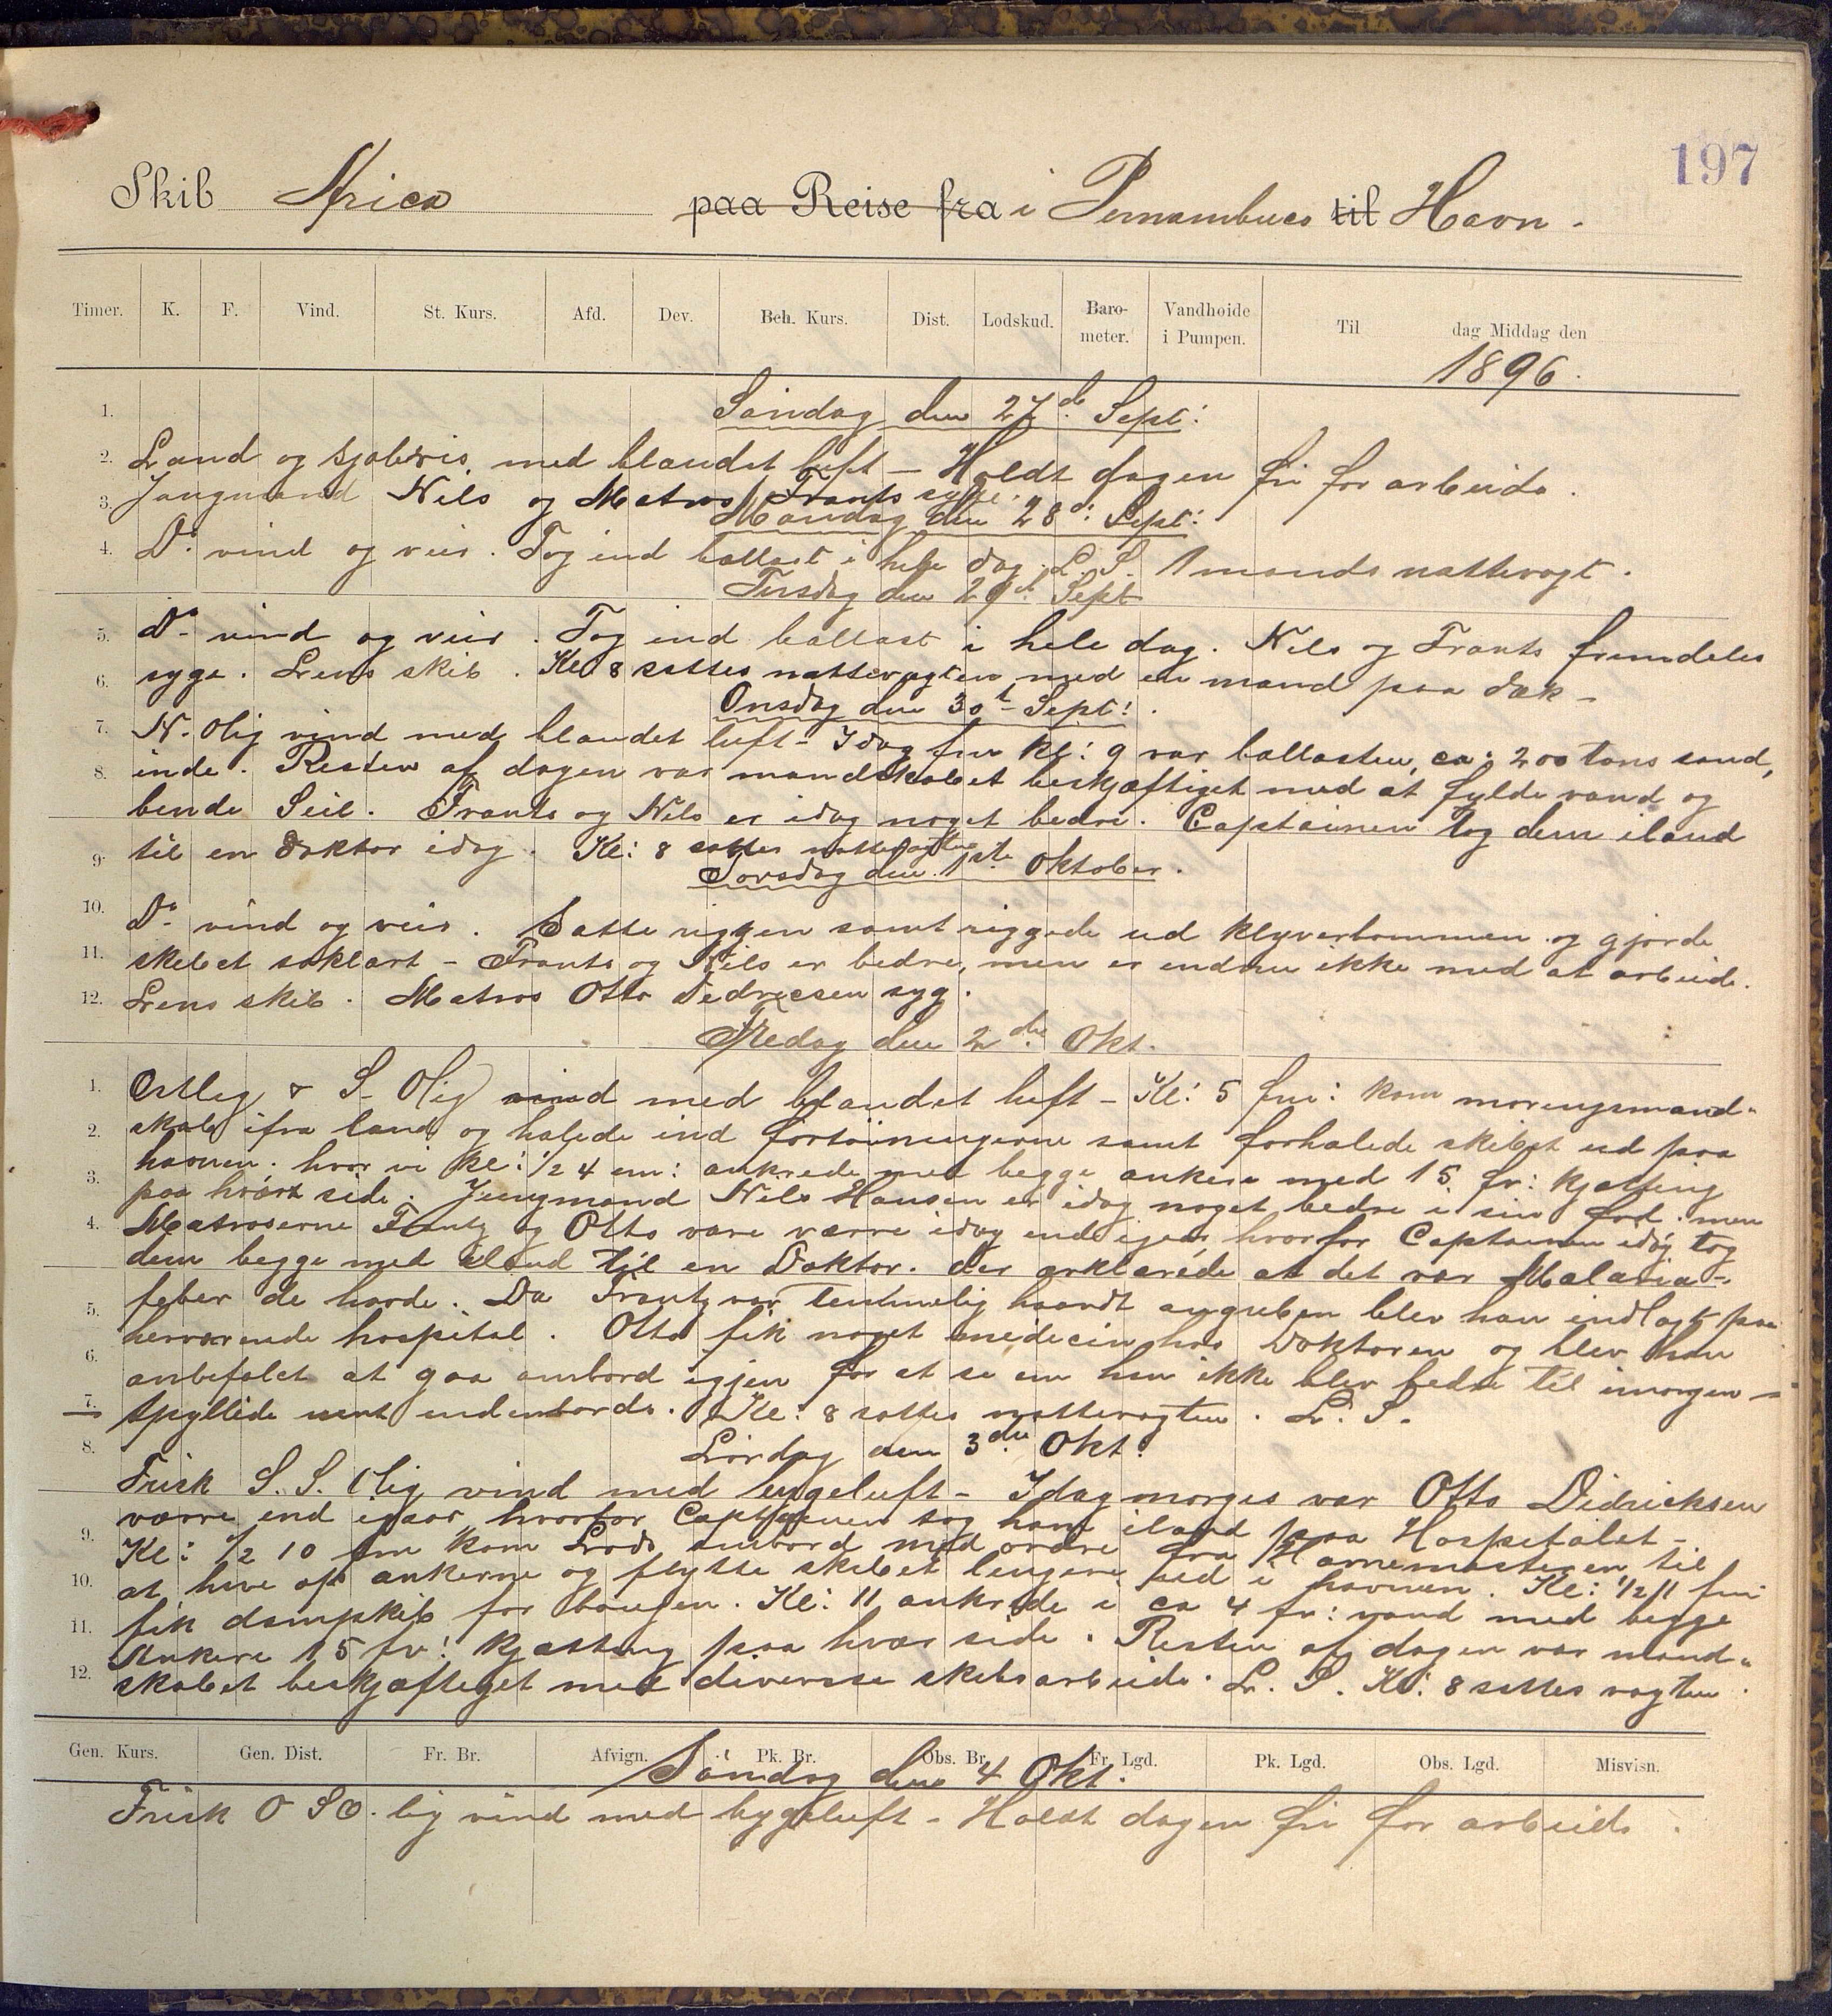 197
Skib Africa paa Reise fra i Pernambuco til Havn.
Timer. K. F. Vind. St. Kurs. Afd. Dev. Beh. Kurs. Dist. Lodskud. Baro-meter. Vandhøide i Pumpen. Til dag Middag den
1896.
1. Søndag den 27de Sept:
2. Land og sjøbris, med blandet luft – Holdt dagen fri for arbeide.
3. Jungmand Nils og Matros Frants syge.
Mandag den 28d: Sept:
4. Do. vind og veir. Tog ind ballast i hele dag. L. S. 1 mands nattevagt.
Tirsdag den 29d. Sept
5. Do vind og veir. Tog ind ballast i hele dag. Nils og Frants fremdeles
6. syge. Lens skib. Kl 8 sattes nattevagten med en mand paa dæk –
Onsdag den 30t Sept!.
7. N. Olig vind med blandet luft – Idag fm Kl: 9 var ballasten, ca: 200 tons sand,
8. inde. Resten af dagen var mandskabet beskjæftiget med at fylde vand og
bende Seil. Frants og Nils er idag noget bedre. Captainen tog dem iland
9. til en Doktor idag. Kl: 8 sattes nattevagten
Torsdag den 1ste Oktober.
10. Do vind og veir. Satte riggen samt riggede ud klyverbommen og gjorde
11. skibet søklart – Frants og Nils er bedre, men er endnu ikke med at arbeide.
12. Lens skib. Matros Otto Didricsen syg.
Fredag den 2den Okt.
1. Østlig & S. Olig vind med blandet luft – Kl: 5 fm: kom moringsmand-
2. skab ifra land og halede ind fortøiningerne samt forhalede skibet ud paa
havnen. hvor vi Kl: 1/2 4 em: ankrede med begge ankere med 15 fv: kjætting
3. paa hvært side. Jungmand Nils Hansen er idag noget bedre i sin fod. men
4. Matroserne Frantz og Otto vare værre idag end igaar, hvorfor Captainen idag tog
dem begge med iland til en Doktor. der erklærede at det var Malaria-
5. feber de havde. Da Frantz var temmelig haardt angreben blev han indlagt paa
herværende hospital. Otto fik noget medicin hos Doktoren og blev han
6. anbefalet at gaa ombord igjen for at se om han ikke blev bedre til imorgen –
7. Spyllede rent indenbords. Kl: 8 sattes nattevagten. L. S.
8. Lørdag den 3den Okt:
Frisk S. S. Olig vind med bygeluft – Idag morges var Otto Didricksen
værre end igaar hvorfor Captainen tog ham iland paa Hospitalet –
9. Kl: 1/2 10 fm kom Lods ombord med ordre fra Havnemesteren til
at hive op ankerne og flytte skibet lengere ud i havnen. Kl: 1/2 11 fm
10. fik dampskib for bougen. Kl: 11 ankrede i ca 4 fv: vand med begge
11. Ankere 15 fv: kjætting paa hver side. Resten af dagen var mand-
12. skabet beskjæftiget med diverse skibsarbeide. L. S. Kl: 8 sattes vagten.
Gen. Kurs. Gen. Dist. Fr. Br. Afvign. Pk. Br. Obs. Br. Fr. Lgd. Pk. Lgd. Obs. Lgd. Misvisn.
Søndag den 4 Okt.
Frisk O S O. lig vind med bygeluft – Holdt dagen fri for arbeide.